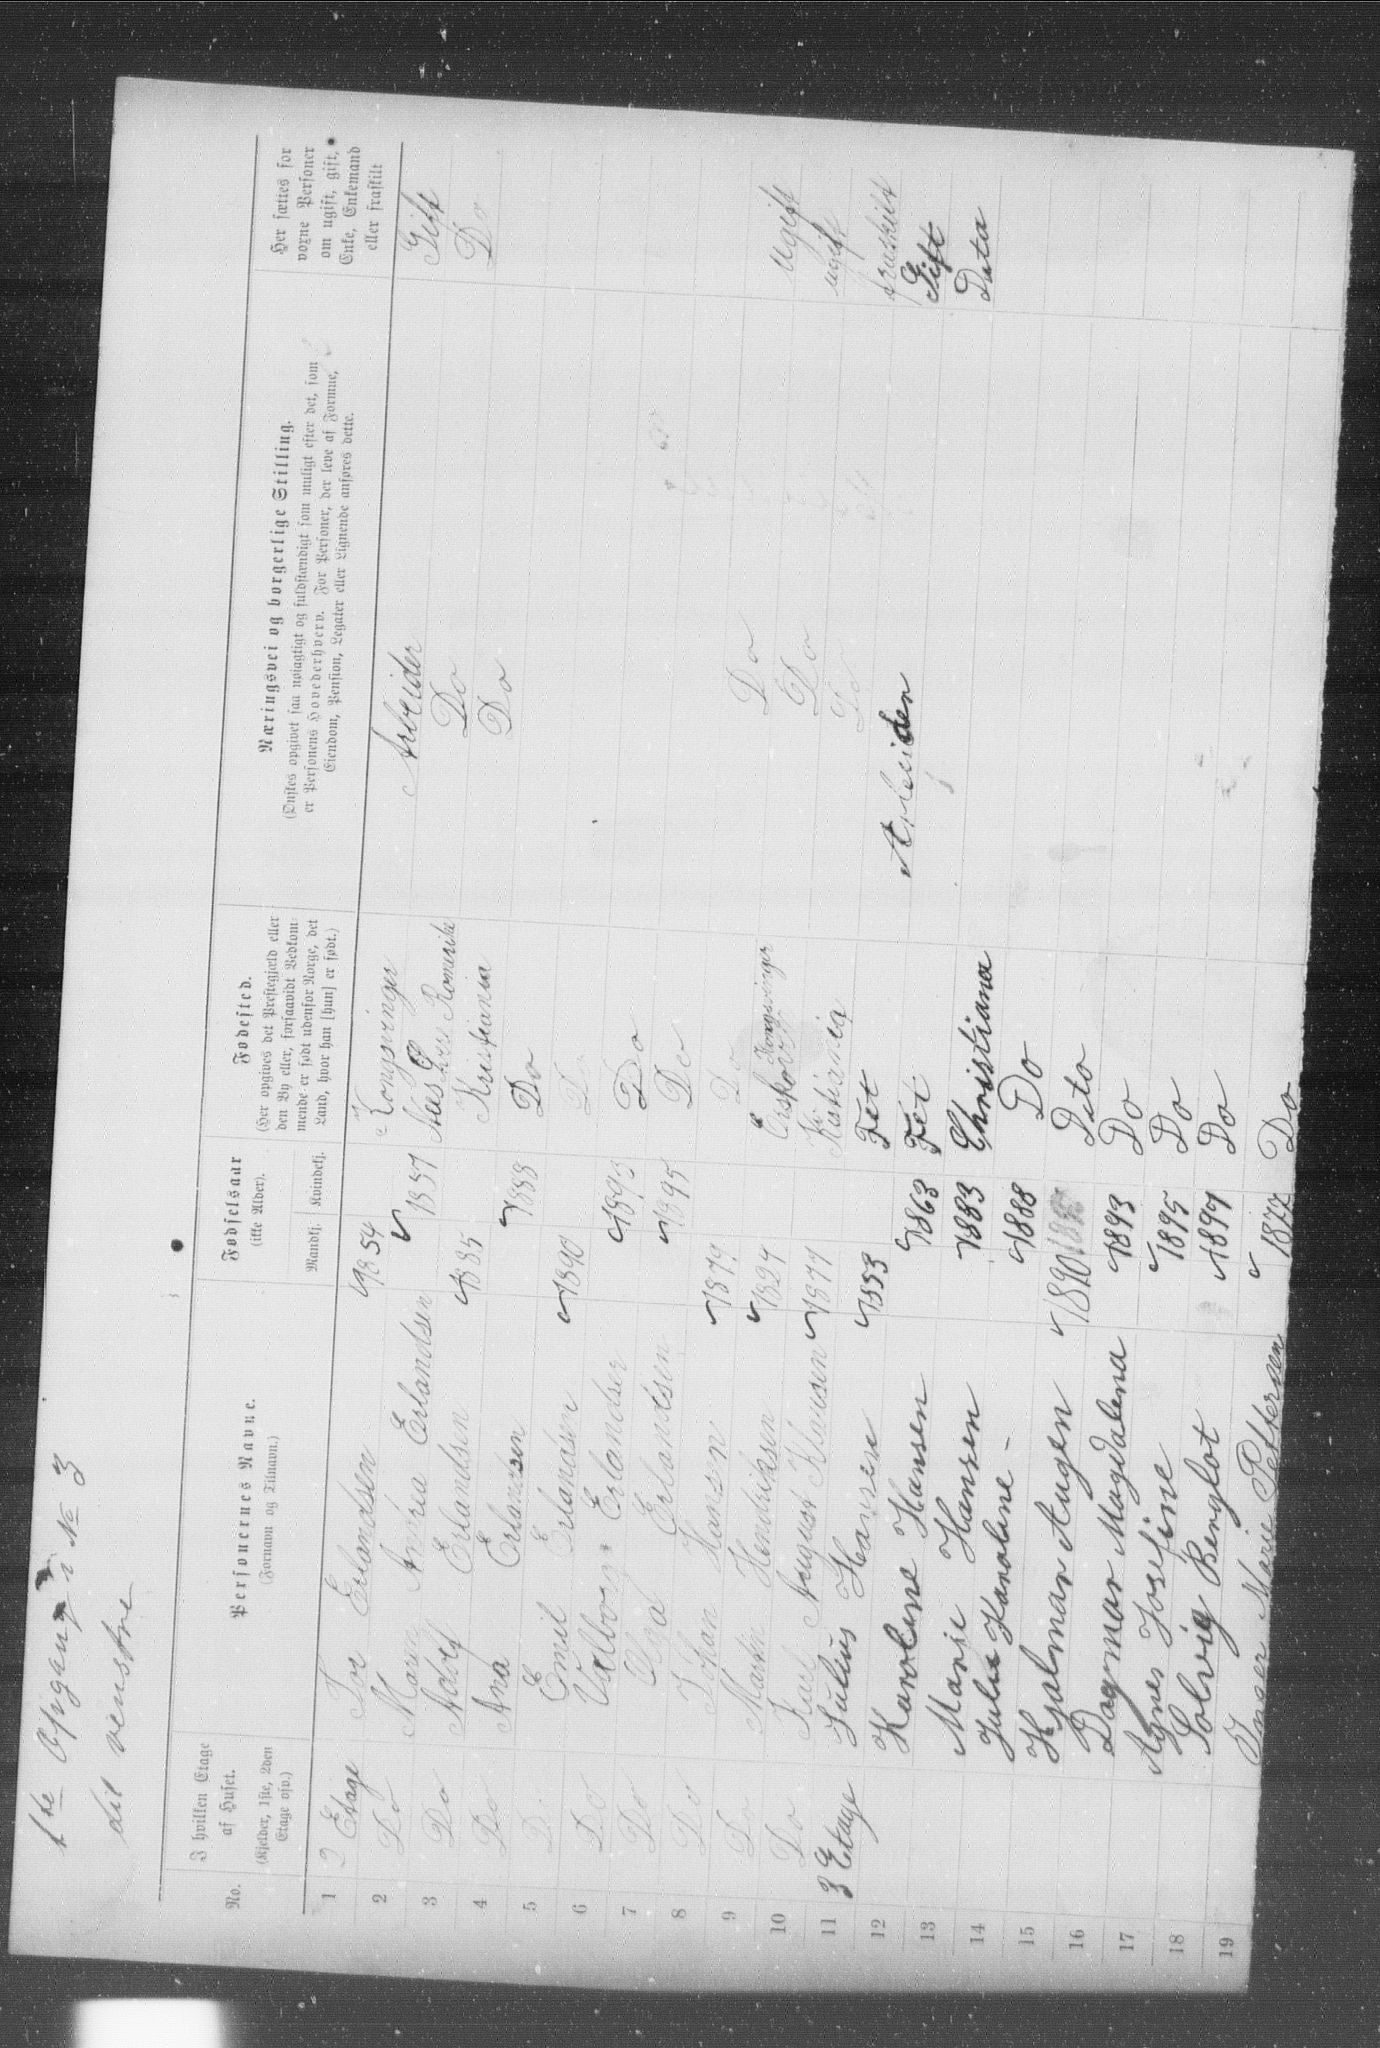 1ste Opgang i № 3
til venstre
No.
I hvilken Etage af Huset.
(Kjelder, 1ste, 2den Etage osv.)
Personernes Navne.
(Fornavn og Tilnavn.)
Fødselsaar
(ikke Alder).
Mandkj.
Kvindekj.
Fødested.
(Her opgives det Præstegjæld eller
den By eller, forsaavidt Vedkom-
mende er født udenfor Norge, det
Land, hvor han [hun] er født.)
Næringsvei og borgerlige Stilling.
(Ønskes opgivet saa nøiagtigt og fuldstændigt som muligt efter det, som
er Personens Hovederhverv. For Personer, der leve af Formue,
Eiendom, Pension, Legater eller Lignende anføres dette.
Her sættes for
voxne Personer
om ugift, gift,
Enke, Enkemand
eller fraskilt
1 2 Etage Tor Erlandsen 1854 Kongsvinger Arbeider Gift
2 Do Maren Andrea Erlandsen 1857 Næs Romerike Do Do
3 Do Adolf Erlandsen 1885 Kristiania Do
4 Do Anna Erlandsen 1888 Do
5 D. Emil Erlandsen 1890 Do
6 Do Valborg Erlandsen 1893 Do
7 Do Olga Erlandsen 1895 Do
8 Do Johan Hansen 1874 Do Do Ugift
9 D. Martin Henriksen Kongsvinger Do ugift
10 Do Karl August Klausen 1877 Kristiania Do fraskilt
11 3 Etage Julius Hansen 1853 Fet Arbeider Gift
12 Karoline Hansen 1863 Fet Dito
13 Marie Hansen 1883 Christiana
14 Julie Karoline - 1888 Do
15 Hjalmar Augen 1890 Dito
16 Dagmar Magdalena 1893 Do
17 Agnes Josefine 1895 Do
18 Solveig Bergliot 1897 Do
19 Inger Marie Pettersen 1877 Do